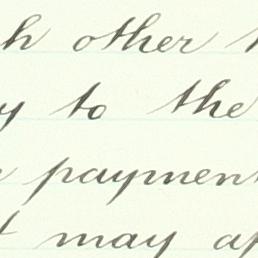 h other
y to the
payment
may ap